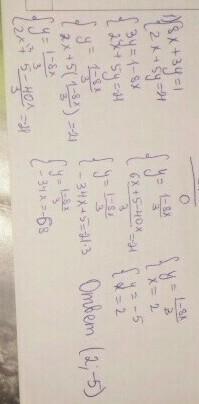 1) {8x+3y=1
2x+5y=-21
{3y=1-8x
2x+5y=-21
{y=\frac{1-8x}{3}
2x+5(\frac{1-8x}{3})=-21
{y=\frac{1-8x}{3}
2x+\frac{5-40x}{3}=-21
{y=\frac{1-8x}{3}
\frac{6x+5-40x}{3}=-21
{y=\frac{1-8x}{3}
-34x+5=-21·3
{y=\frac{1-8x}{3}
-34x=-68
{y=\frac{1-8x}{3}
x=2
{y=-5
x=2
Ответ (2;-5)